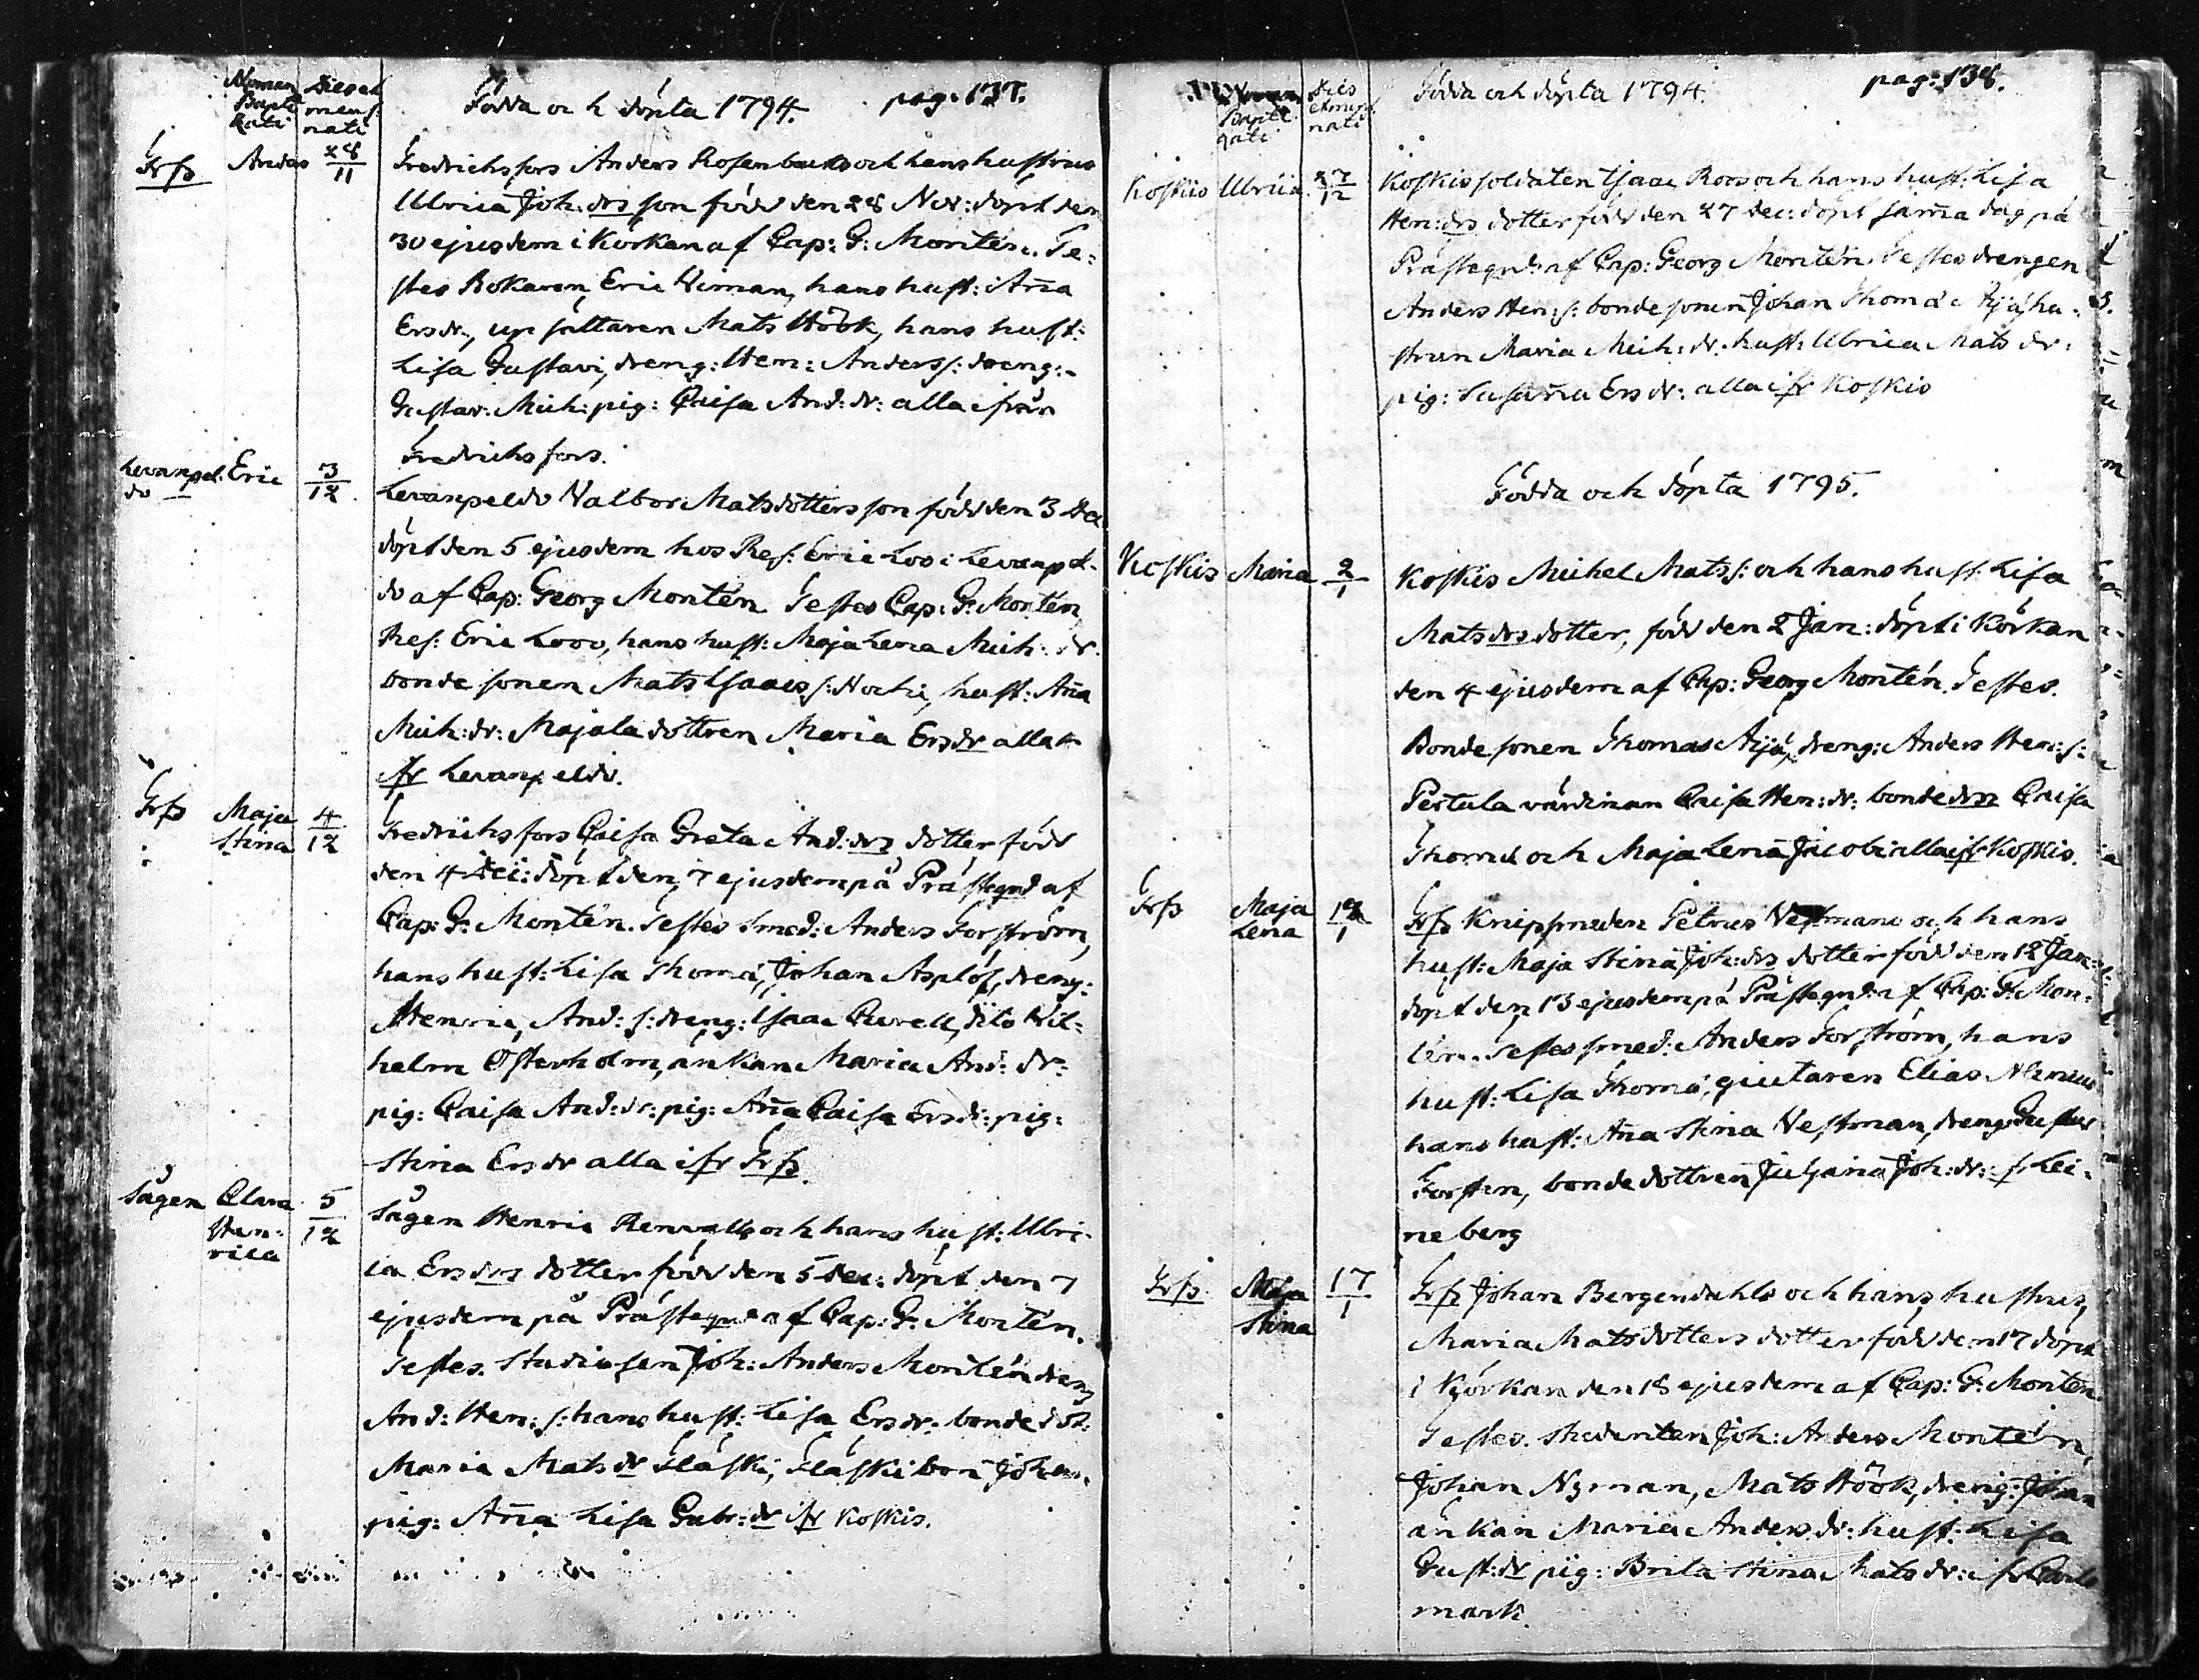 Nomen Bapti- zati
Dies et mens: nati
Födda och döpta 1794. pag: 137.
Frfs Anders 28/11
Fredrichsfors Anders Rosenbacks och hans hustrus
Ulrica Joh: drs son född den 28 Nov: döpt den
30 ejusdem i Körkan af Cap: G: Montén. Te-
stes Bokaren Eric Viman, hans hust: Aña
Ersdr, upsättaren Mats Höök, hans hust:
Lisa Gustavi, dreng: Hen: Anderss: dreng:
Gustav: Mich: pig: Caisa And: dr: alla ifrån
Fredrichsfors.
Levanpel- do Eric 3/12
Levanpeldo Valbor Matsdotters son född den 3 Dec
döpt den 5 ejusdem hos Ref: Eric Loo i Levanpel-
do af Cap: Georg Montén Testes Cap: G: Montén,
Ref: Eric Looo, hans hust: Maja Lena Mich: dr.
bonde sonen Mats Isaacs s: Nocki, hust: Aña
Mich: dr: Majala dottren Maria Ersdr alla
ifr Levanpeldo.
Frfs Maja Stina 4/12
Fredrichsfors Caisa Greta And: drs dotter född
den 4 Dec: döpt den 7 ejusdem på Prästegrd af
Cap: G: Montén. Testes Smed: Anders Forström,
hans hust: Lisa Thomä, Johan Asplöf, dreng:
Henric, And: s: dreng: Isaac Curell, dito Vil-
helm Österholm, änkan Maria And: dr:
pig: Caisa And: dr: pig: Aña Caisa Ersdr: pig:
Stina Ersdr alla ifr Frfs.
Sågen Clara Hen- rica 5/12
Sågen Henric Renvalls och hans hust: Ulri-
ca Ersdrs dotter född den 5 Dec: döpt den 7
ejusdem på Prästegrd af Cap: G: Montén.
Testes. Studiosen Joh: Anders Montén dreng
And: Hen: s: hans hust: Lisa Ersdr: bonde dot:
Maria Mats dr Fläski, Fläski bon Johan.
pig: Aña Lisa Gabr: dr ifr Koskis.
Nomen Bapti- zati
Dies et mens: nati
Födda och döpta 1794. pag: 138.
Koskis Ulrica 27/12
Koskis soldaten Isaac Roos och hans hust: Lisa
Hen: drs dotter född den 27 Dec: döpt sam̃a dag på
Prästegrd: af Cap: Georg Montén. Testes drengen
Anders Hen: s: bonde sonen Johan Thomä Äijä, hu-
strun Maria Mich: dr. hust: Ulrica Mats dr:
pig: Susan̄a Ersdr: alla ifr Koskis
Födda och döpta 1795.
Koskis Maria 2/1
Koskis Michel Mats s: och hans hust: Lisa
Mats drs dotter, född den 2 Jan: döpt i Körkan
den 4 ejusdem af Cap: Georg Montén. Testes.
Bonde sonen Thomas Äijä, dreng: Anders Hen: s:
Pertula värdinan Caisa Hen: dr: bonde drn Caisa
Thomä och Maja Lena Jacobi alla ifr Koskis.
Frfs Maja Lena 12/1
Frfs Knipsmeden Petrus Vestmans och hans
hust: Maja Stina Joh: drs dotter född den 12 Jan:
döpt den 13 ejusdem på Prästegrd: af Cap: G: Mon-
tén. Testes smed: Anders Forström, hans
hust: Lisa Thomä, giutaren Elias
hans hust: Aña Stina Vestman, dreng: Gustav
Forstén, bonde dottren Juliana Joh: dr: if: Lei-
neberg
Frfs Maja Stina 17/1
Frfs Johan Bergendahls och hans hustrus,
Maria Matsdotters dotter född den 17 döpt
i Kjörkan den 18 ejusdem af Cap: G: Montén.
Testes. Studenten Joh: Anders Montén,
Johan Nyman, Mats Höök, dreng: Johan
änkan Maria Anders dr: hust: Lisa
Gust: dr pig: Brita Stina Mats dr: ifr
mark